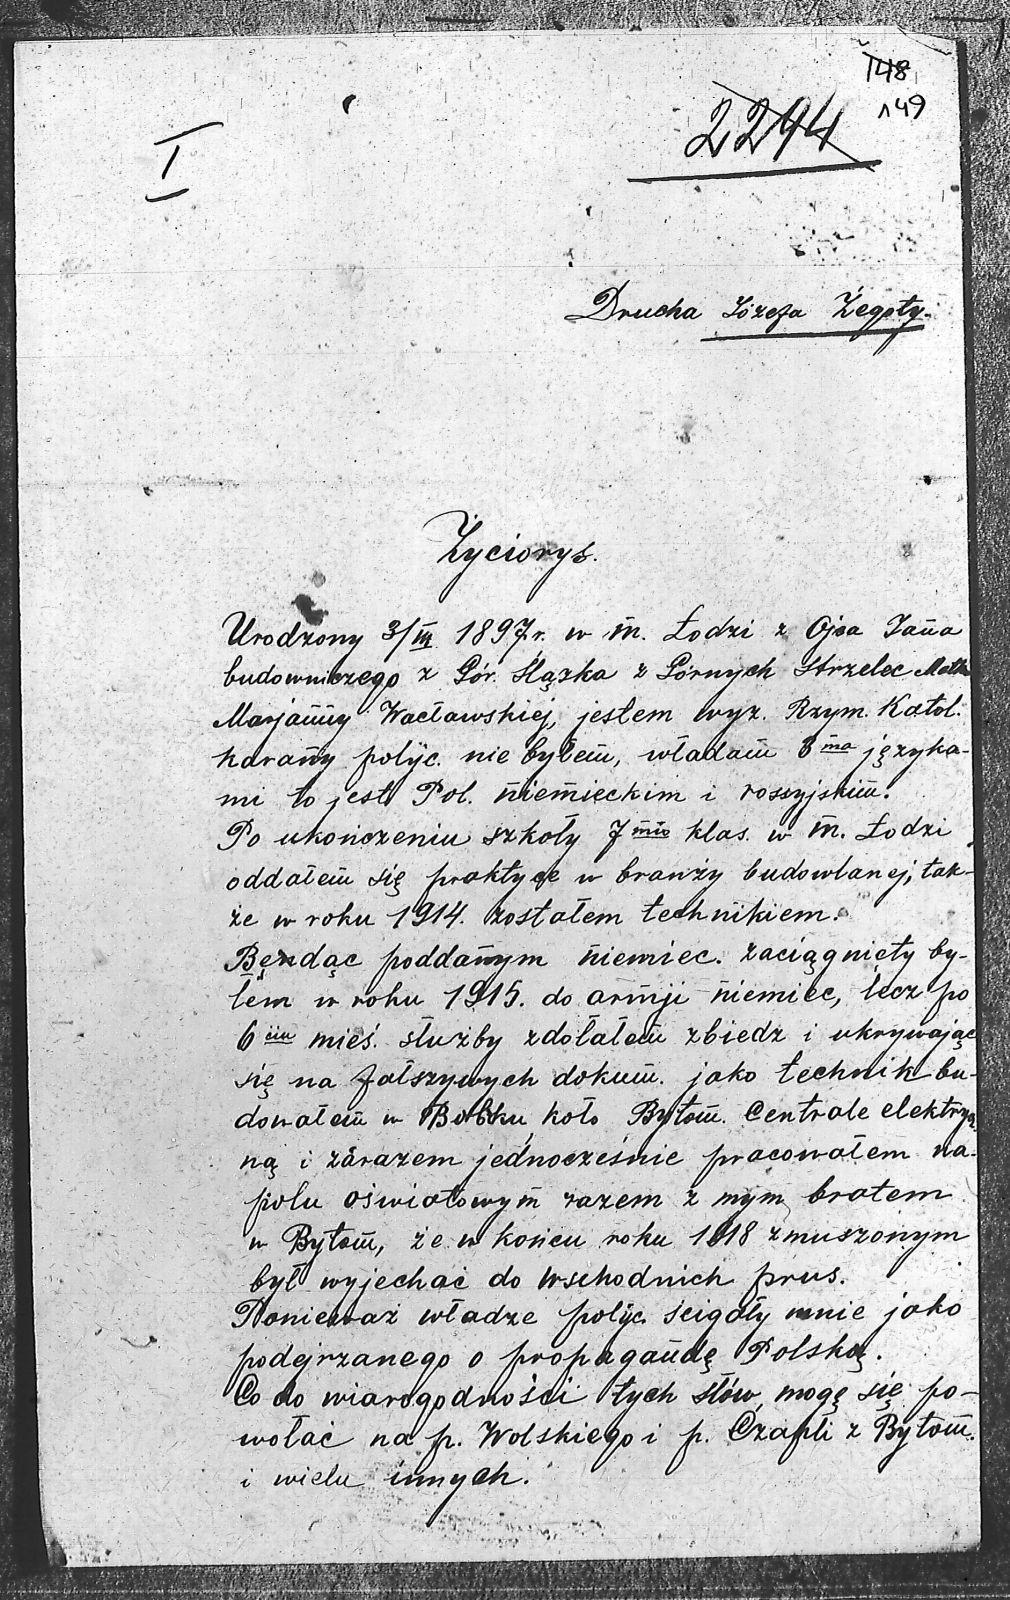 148
149
2294
I
Drucha Józefa Żegoty.
Życiorys.
Urodzony 3/III 1897 r. w m. Łodzi z Ojca Jana
budowniczego z Gór. Ślązka z Górnych Strzelec Matki
Marjanny Wacławskiej, jestem wyz. Rzym. Katol.
karany polic. nie byłem, władam 3ma języka-
mi to jest Pol. niemieckim i rossyjskim.
Po ukończeniu szkoły 7mio klas. w m. Łodzi
oddałem się praktyce w branży budowlanej, tak-
że w roku 1914. zostałem technikiem.
Bęndąc poddanym niemiec. zaciągnięty by-
łem w roku 1915. do armji niemiec, lecz po
6ciu mieś. służby zdołałem zbiedz i ukrywając
się na fałszywych dokum. jako technik bu-
dowałem w Bobrku, koło Bytom. Centrale elektrycz.
ną i zarazem jednocześnie pracowałem na-
polu oświatowym razem z mym bratem
w Bytom, że w końcu roku 1918 zmuszonym
był wyjechać do wschodnich prus.
Ponieważ władze polic. ścigały mnie jako
podejrzanego o propagandę Polską.
Co do wiarogodności tych słów mogę się po-
wołać na p. Wolskiego i p. Czapli z Bytom.
i wielu innych.